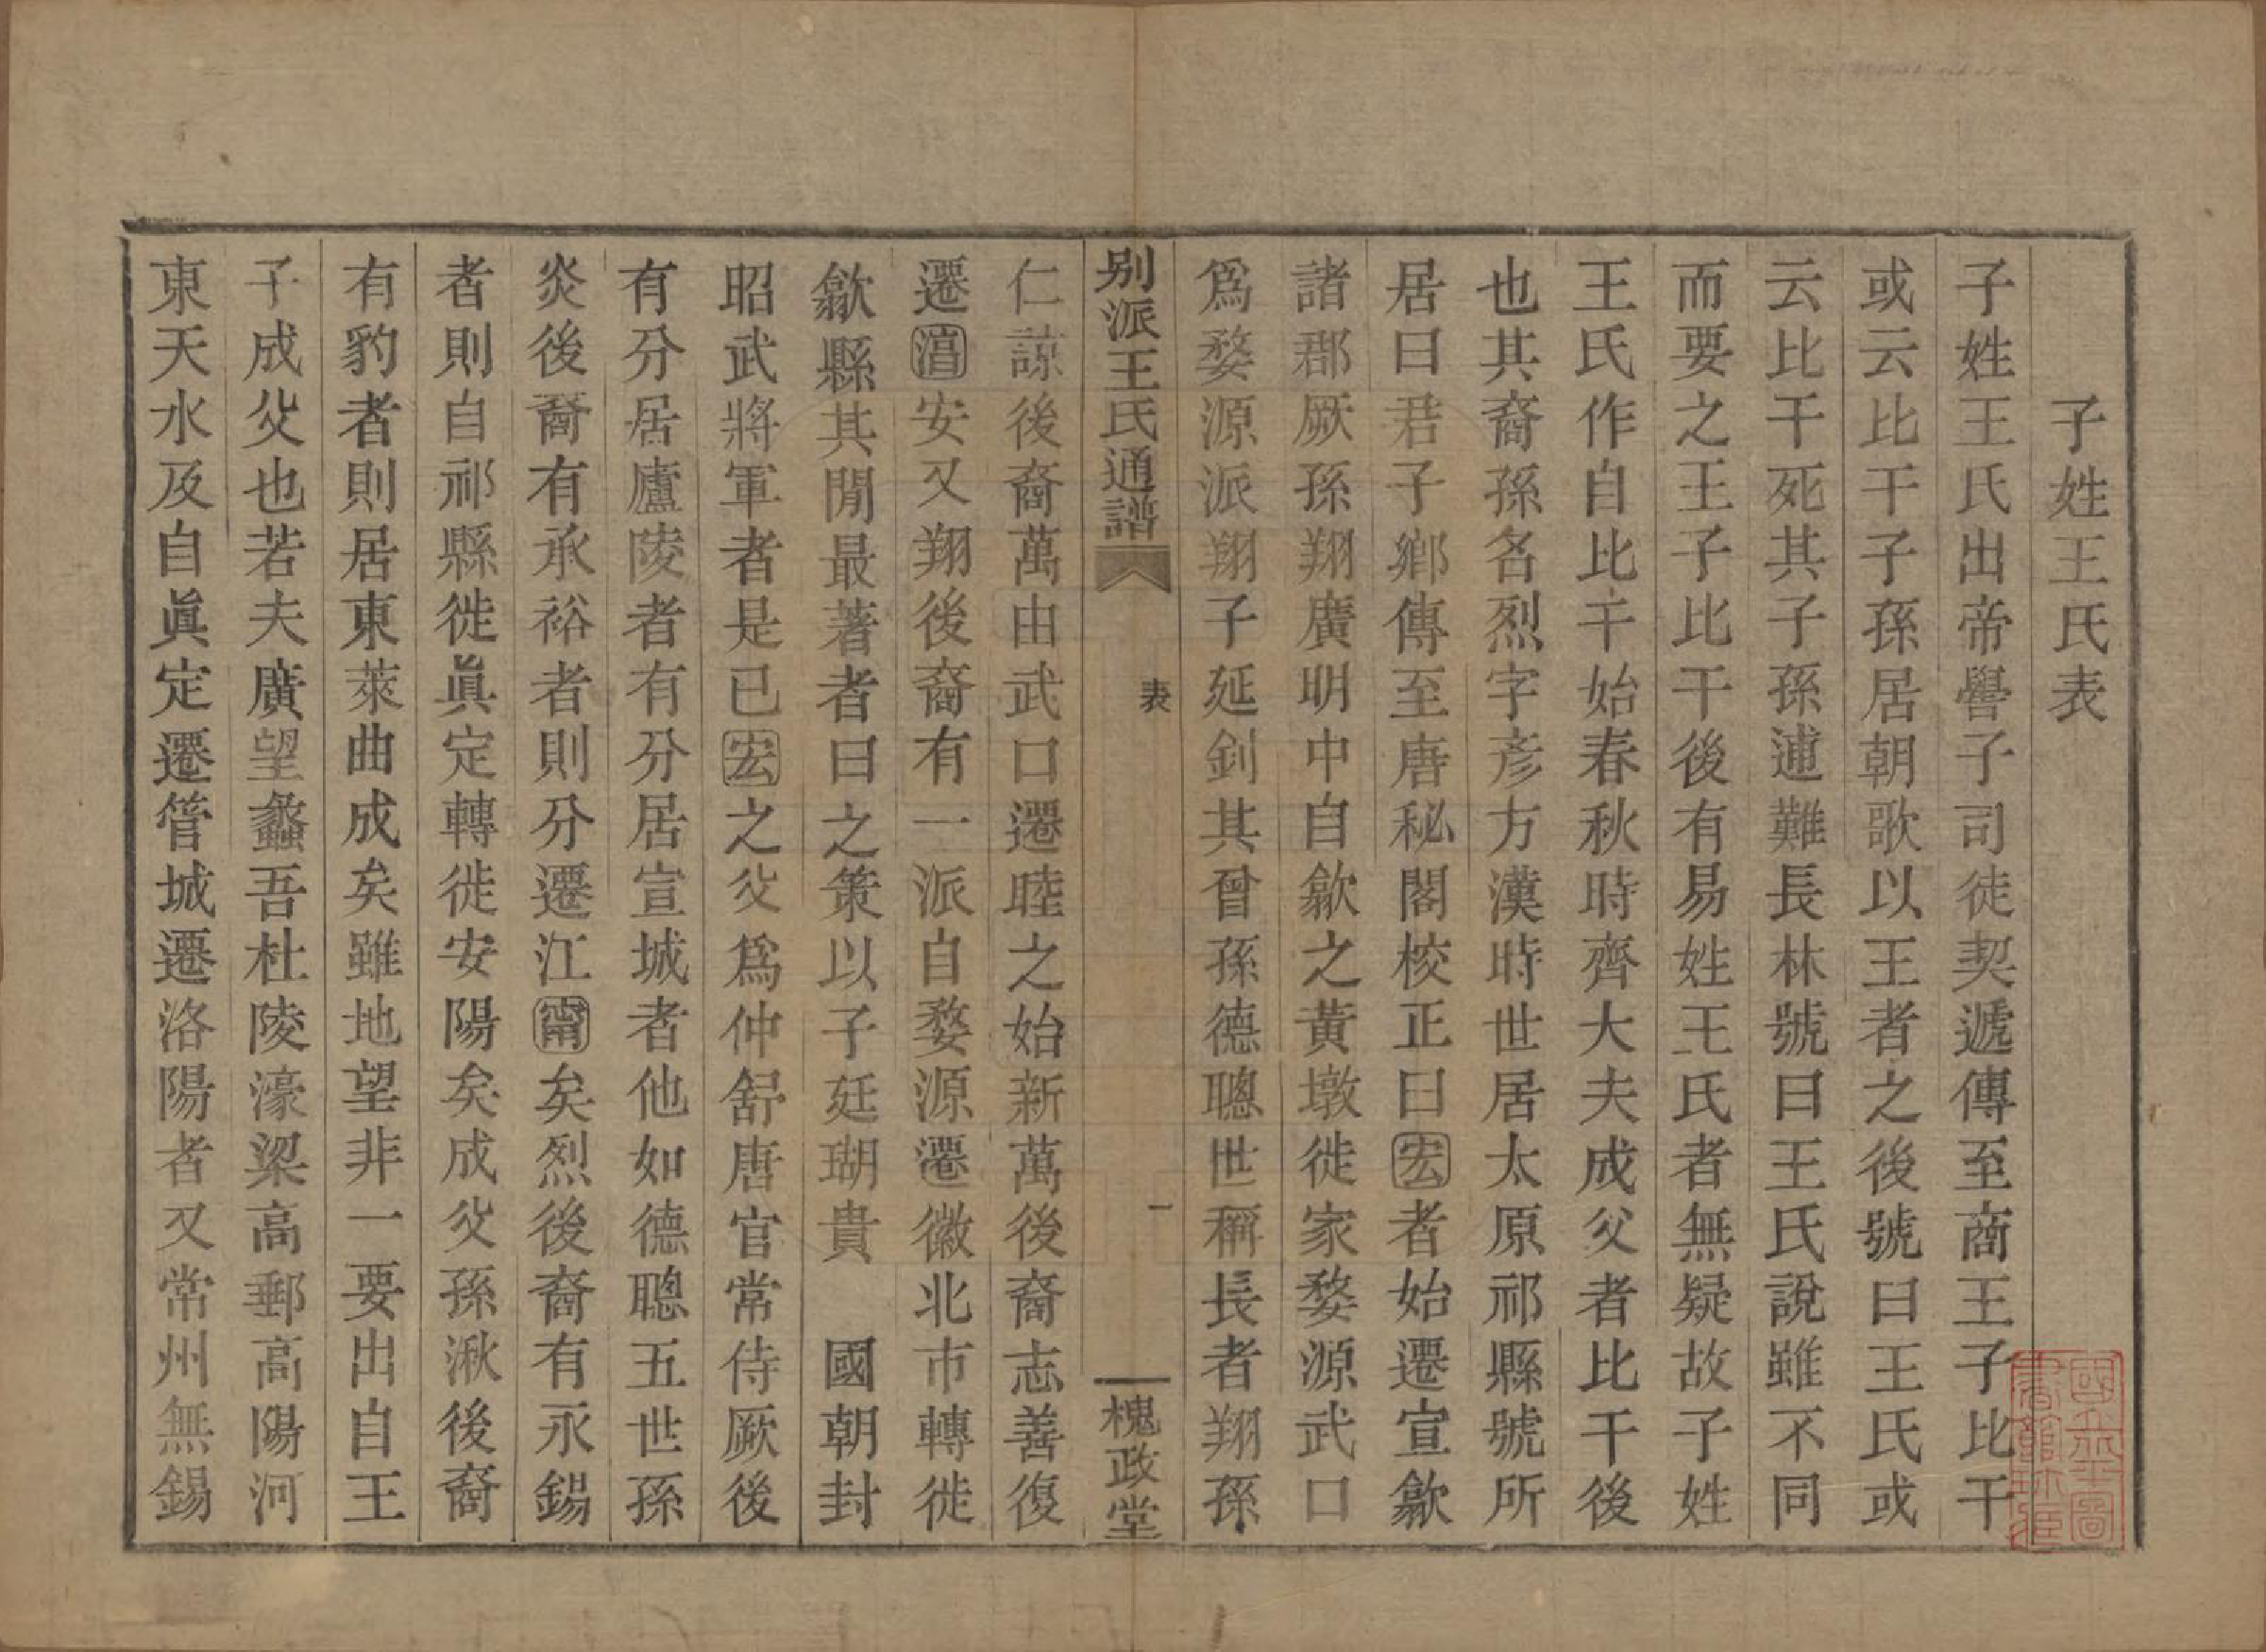 子姓王氏表
子姓王氏出帝嚳子司徒契遞傳至商王子比干
或云比干子孫居朝歌以王者之後號曰王氏或
云比干死其子孫逋難長林號曰王氏說雖不同
而要之王子比干後有易姓王氏者無疑故子姓
王氏作自比干始春秋時齊大夫成父者比干後
也其裔孫名烈字彥方漢時世居太原祁縣號所
居曰君子鄉傳至唐秘閣校正曰宏者始遷宣歙
諸郡厥孫翔廣明中自歙之黃墩徙家婺源武口
爲婺源派翔子延釗其曾孫德聰世稱長者翔孫
別派王氏通譜
表
一
槐政堂
仁諒後裔萬由武口遷睦之始新萬後裔志善復
遷淯安又翔後裔有一派自婺源遷徽北市轉徙
歙縣其閒最著者曰之策以子廷瑚貴 國朝封
昭武將軍者是已宏之父爲仲舒唐官常侍厥後
有分居廬陵者有分居宣城者他如德聰五世孫
炎後裔有承裕者則分遷江甯矣烈後裔有永錫
者則自祁縣徙眞定轉徙安陽矣成父孫湫後裔
有豹者則居東萊曲成矣雖地望非一要出自王
子成父也若夫廣望蠡吾杜陵濠梁高郵高陽河
東天水及自眞定遷管城遷洛陽者又常州無錫
國立北平圖
書館珍藏